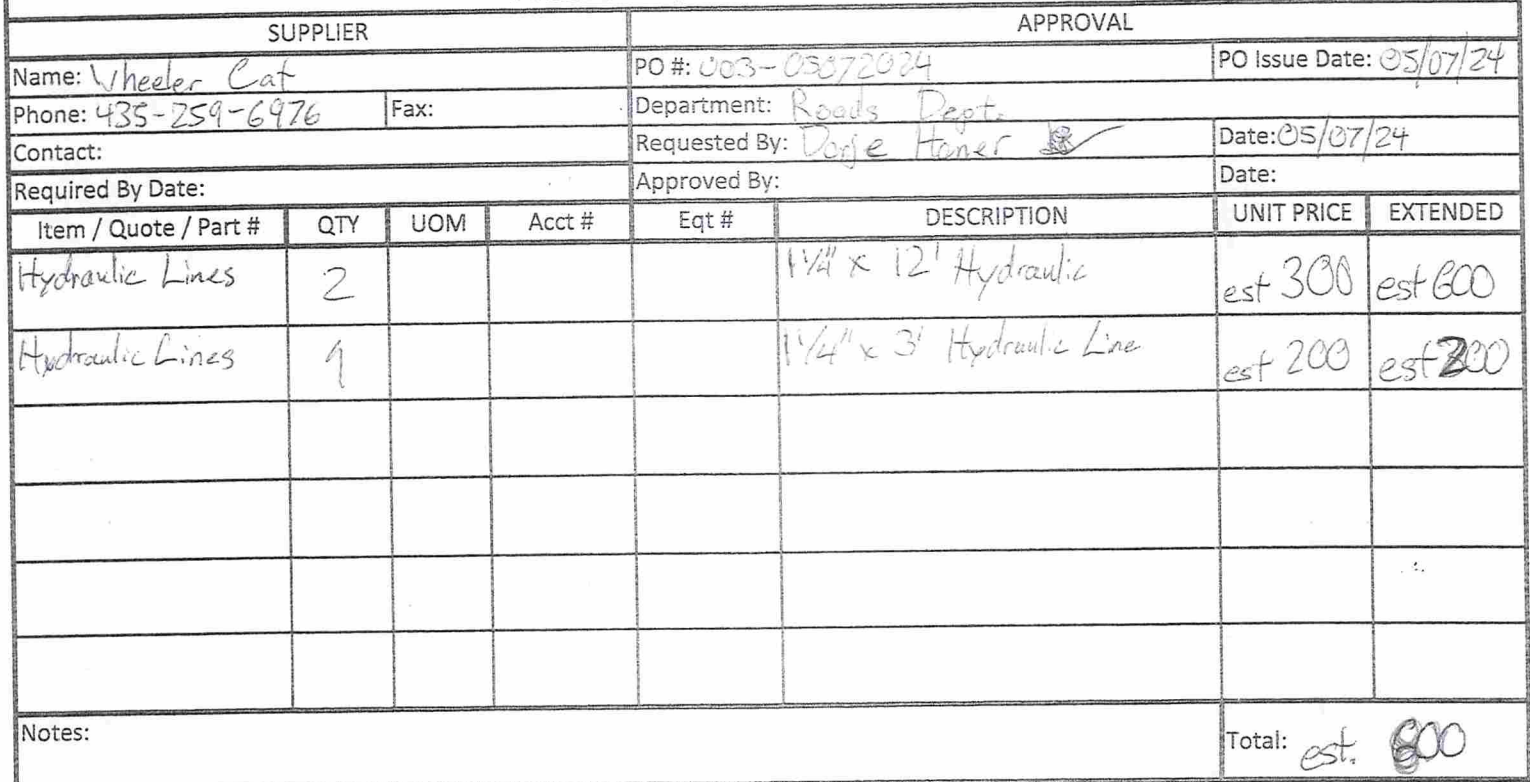 SUPPLIER APPROVAL
Name: Wheeler Cat PO #: 003-05072024 PO Issue Date: 05/07/24
Phone: 435-259-6976 Fax: Department: Roads Dept.
Contact: Requested By: Dorje Honer Date: 05/07/24
Required By Date: Approved By: Date:
Item / Quote / Part # QTY UOM Acct # Eqt # DESCRIPTION UNIT PRICE EXTENDED
Hydraulic Lines 2 1 1/4" x 12' Hydraulic est 300 est 600
Hydraulic Lines 1 1 1/4" x 3' Hydraulic Line est 200 est 200
Notes: Total: est. 800